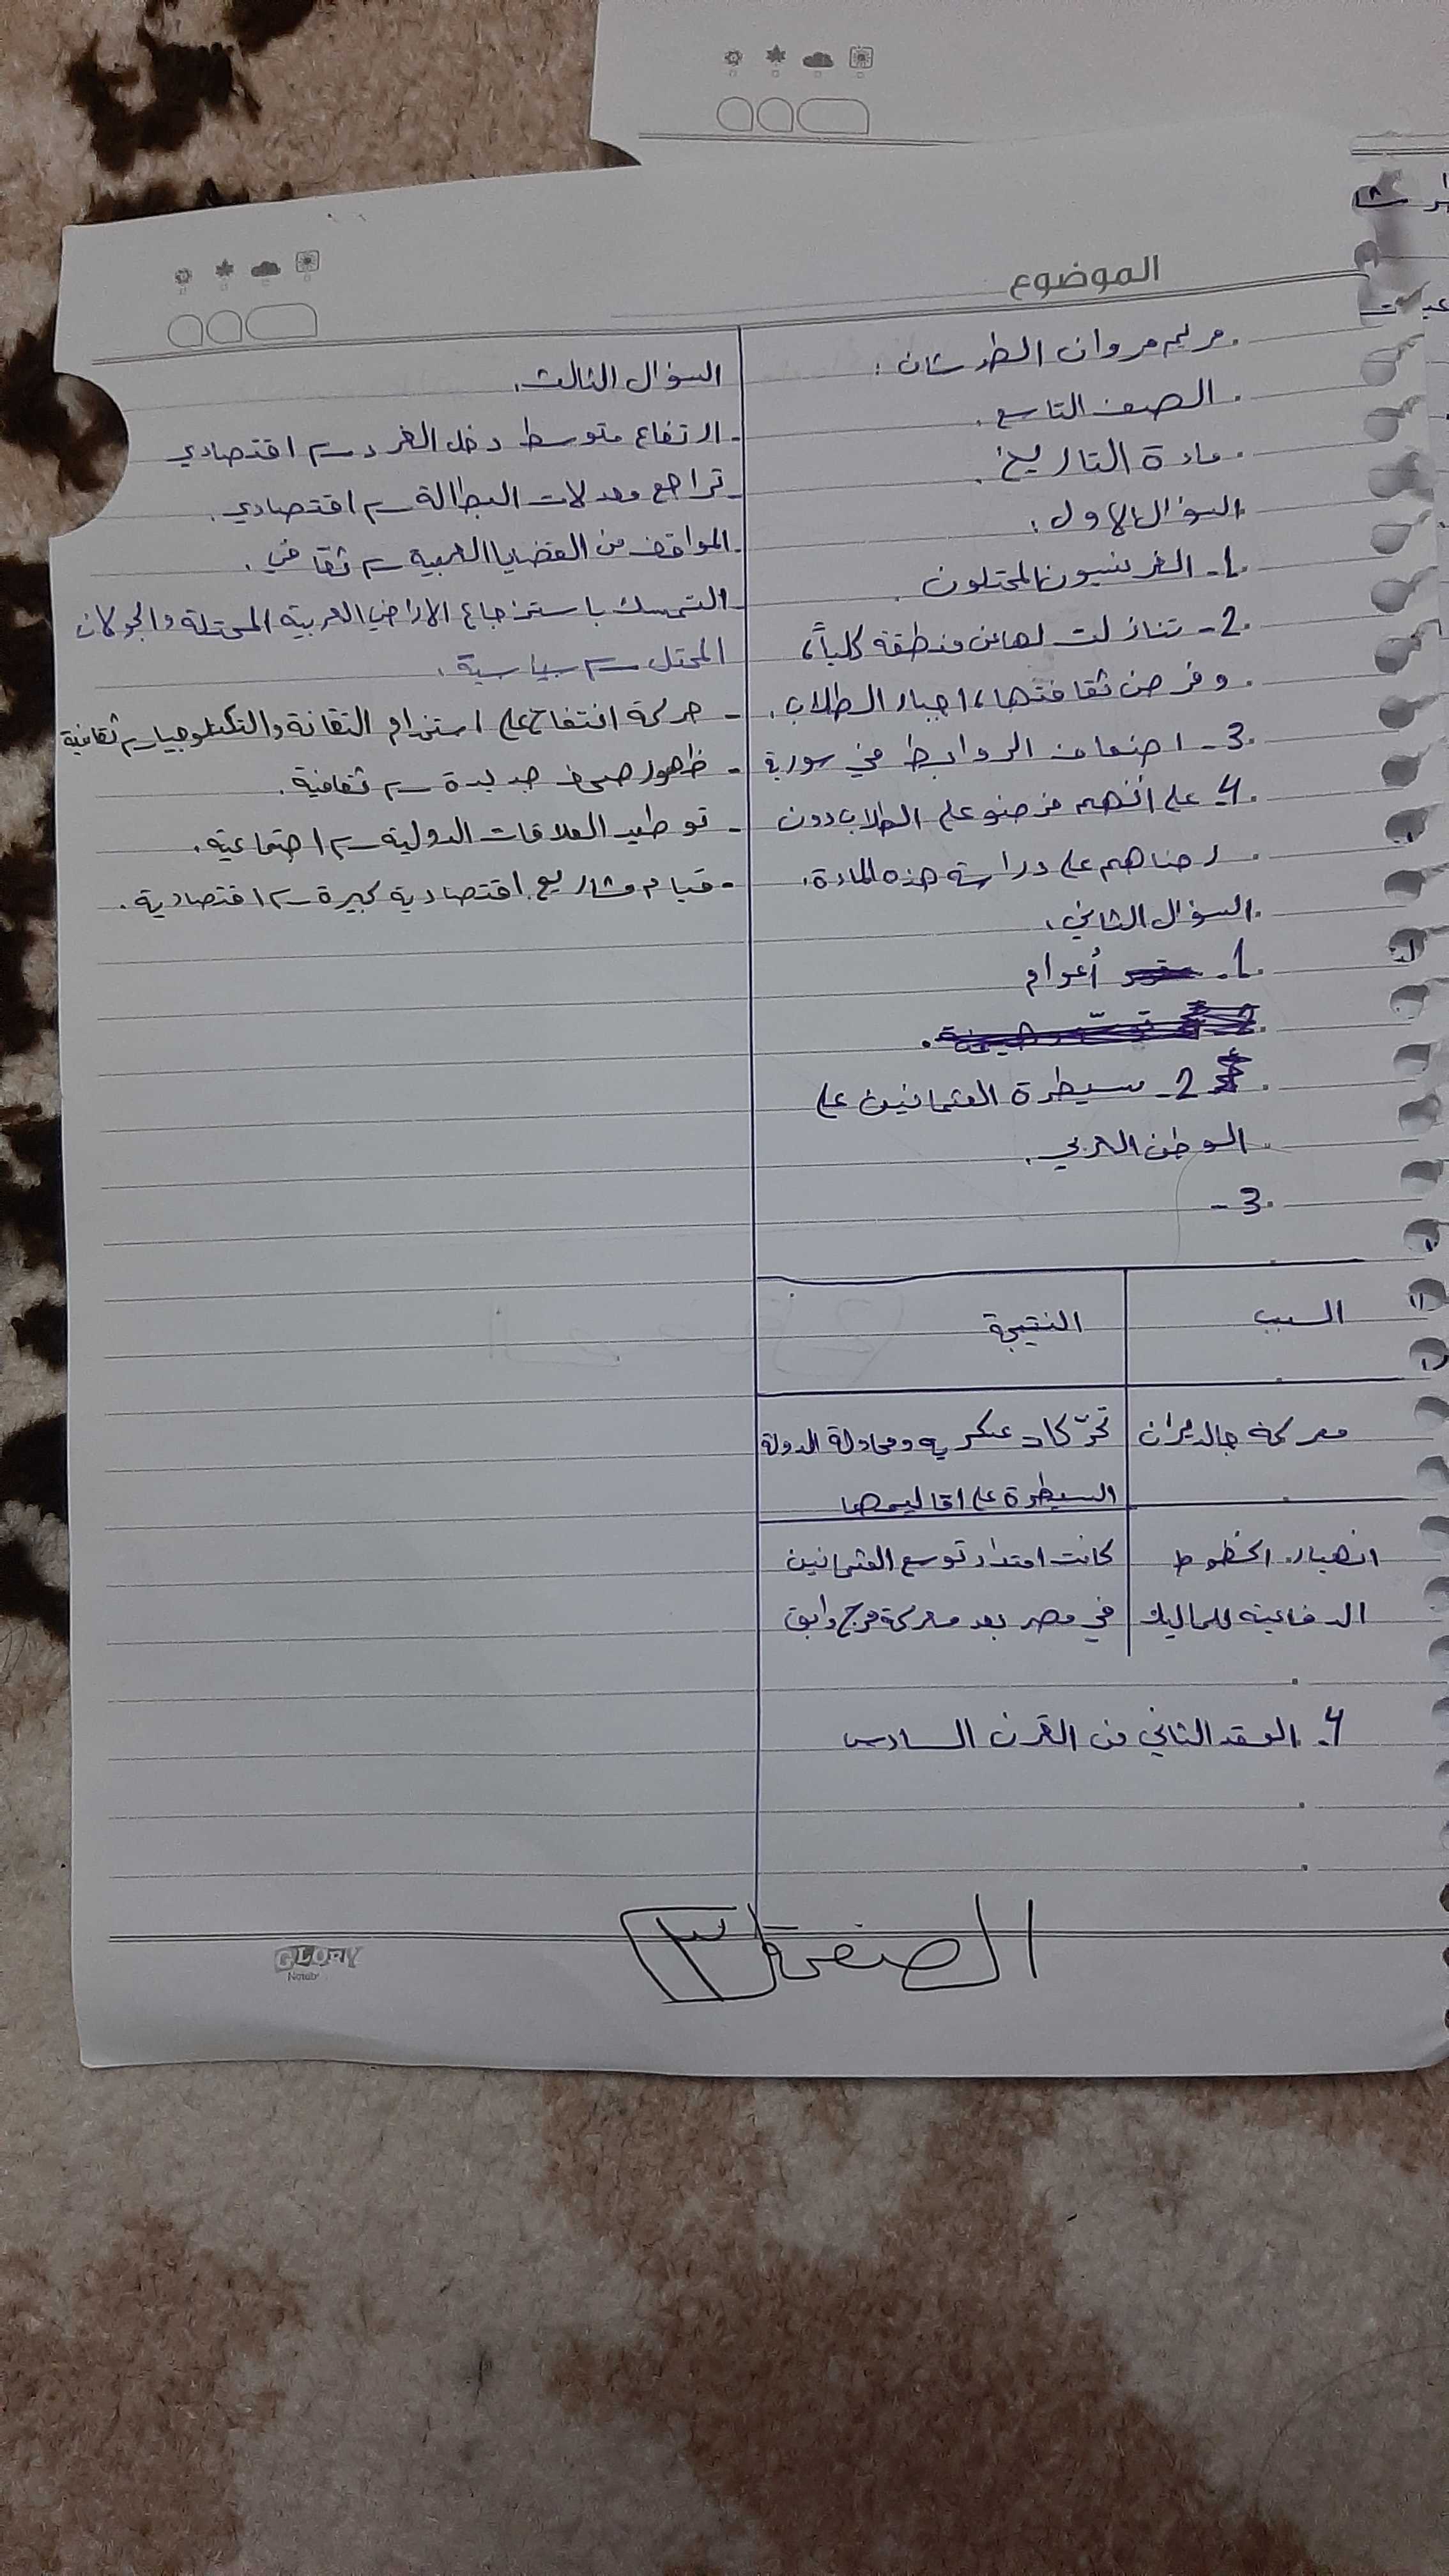 الموضوع
مريم مروان الطرشان :
الصف التاسع .
مادة التاريخ .
السؤال الاول :
1- الفرنسيون المحتلون .
2- تنازلت لها عن منطقة كلياً،
وفرض ثقافتها، اجبار الطلاب .
3- اضعاف الروابط في سورية
4- على أنهم فرضو على الطلاب دون
رضاهم على دراسة هذه المادة .
السؤال الثاني :
1- أعوام
2- سيطرة العثمانيين على
الوطن العربي .
3-
السبب النتيجة
معركة جالديران تحرّكات عسكرية ومحاولة الدولة
السيطرة على اقاليمها
انهيار الخطوط كانت امتداد توسع العثمانيين
الدفاعية للماليك في مصر بعد معركة مرج دابق
4. العقد الثاني من القرن السادس
السؤال الثالث :
- ارتفاع متوسط دخل الفرد اقتصادي
- تراجع معدلات البطالة اقتصادي .
- المواقف من القضايا العربية ثقافي .
- التمسك باسترجاع الاراضي العربية المحتلة والجولان
المحتل سياسية .
- حركة انفتاح على استخدام التقانة والتكنلوجيا ثقافية
- ظهور صحف جديدة ثقافية .
- توطيد العلاقات الدولية اجتماعية .
- قيام مشاريع اقتصادية كبيرة اقتصادية .
الصفحة ٣
GLORY
Notebook